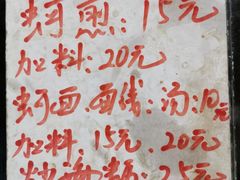 蚵煎：15元
加料：20元
蚵面 面线：汤：10元
加料：15元、20元
炒面线：25元